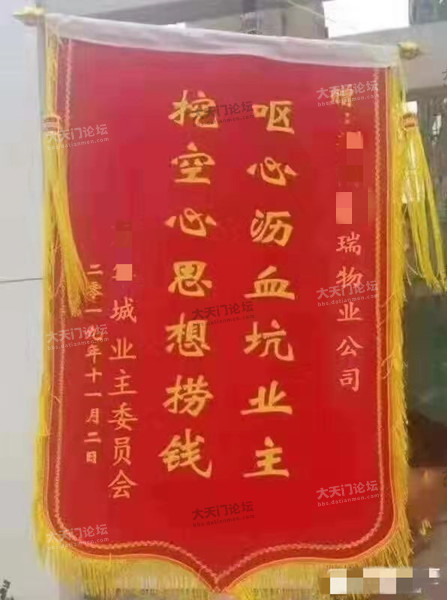 赠:
瑞物业公司
呕心沥血坑业主
挖空心思想捞钱
城业主委员会
二零一九年十一月二日
大天门论坛
bbs.datianmen.com
大天门论坛
bbs.datianmen.com
大天门论坛
bbs.datianmen.com
大天门论坛
bbs.datianmen.com
大天门论坛
bbs.datianmen.com
大天门论坛
bbs.datianmen.com